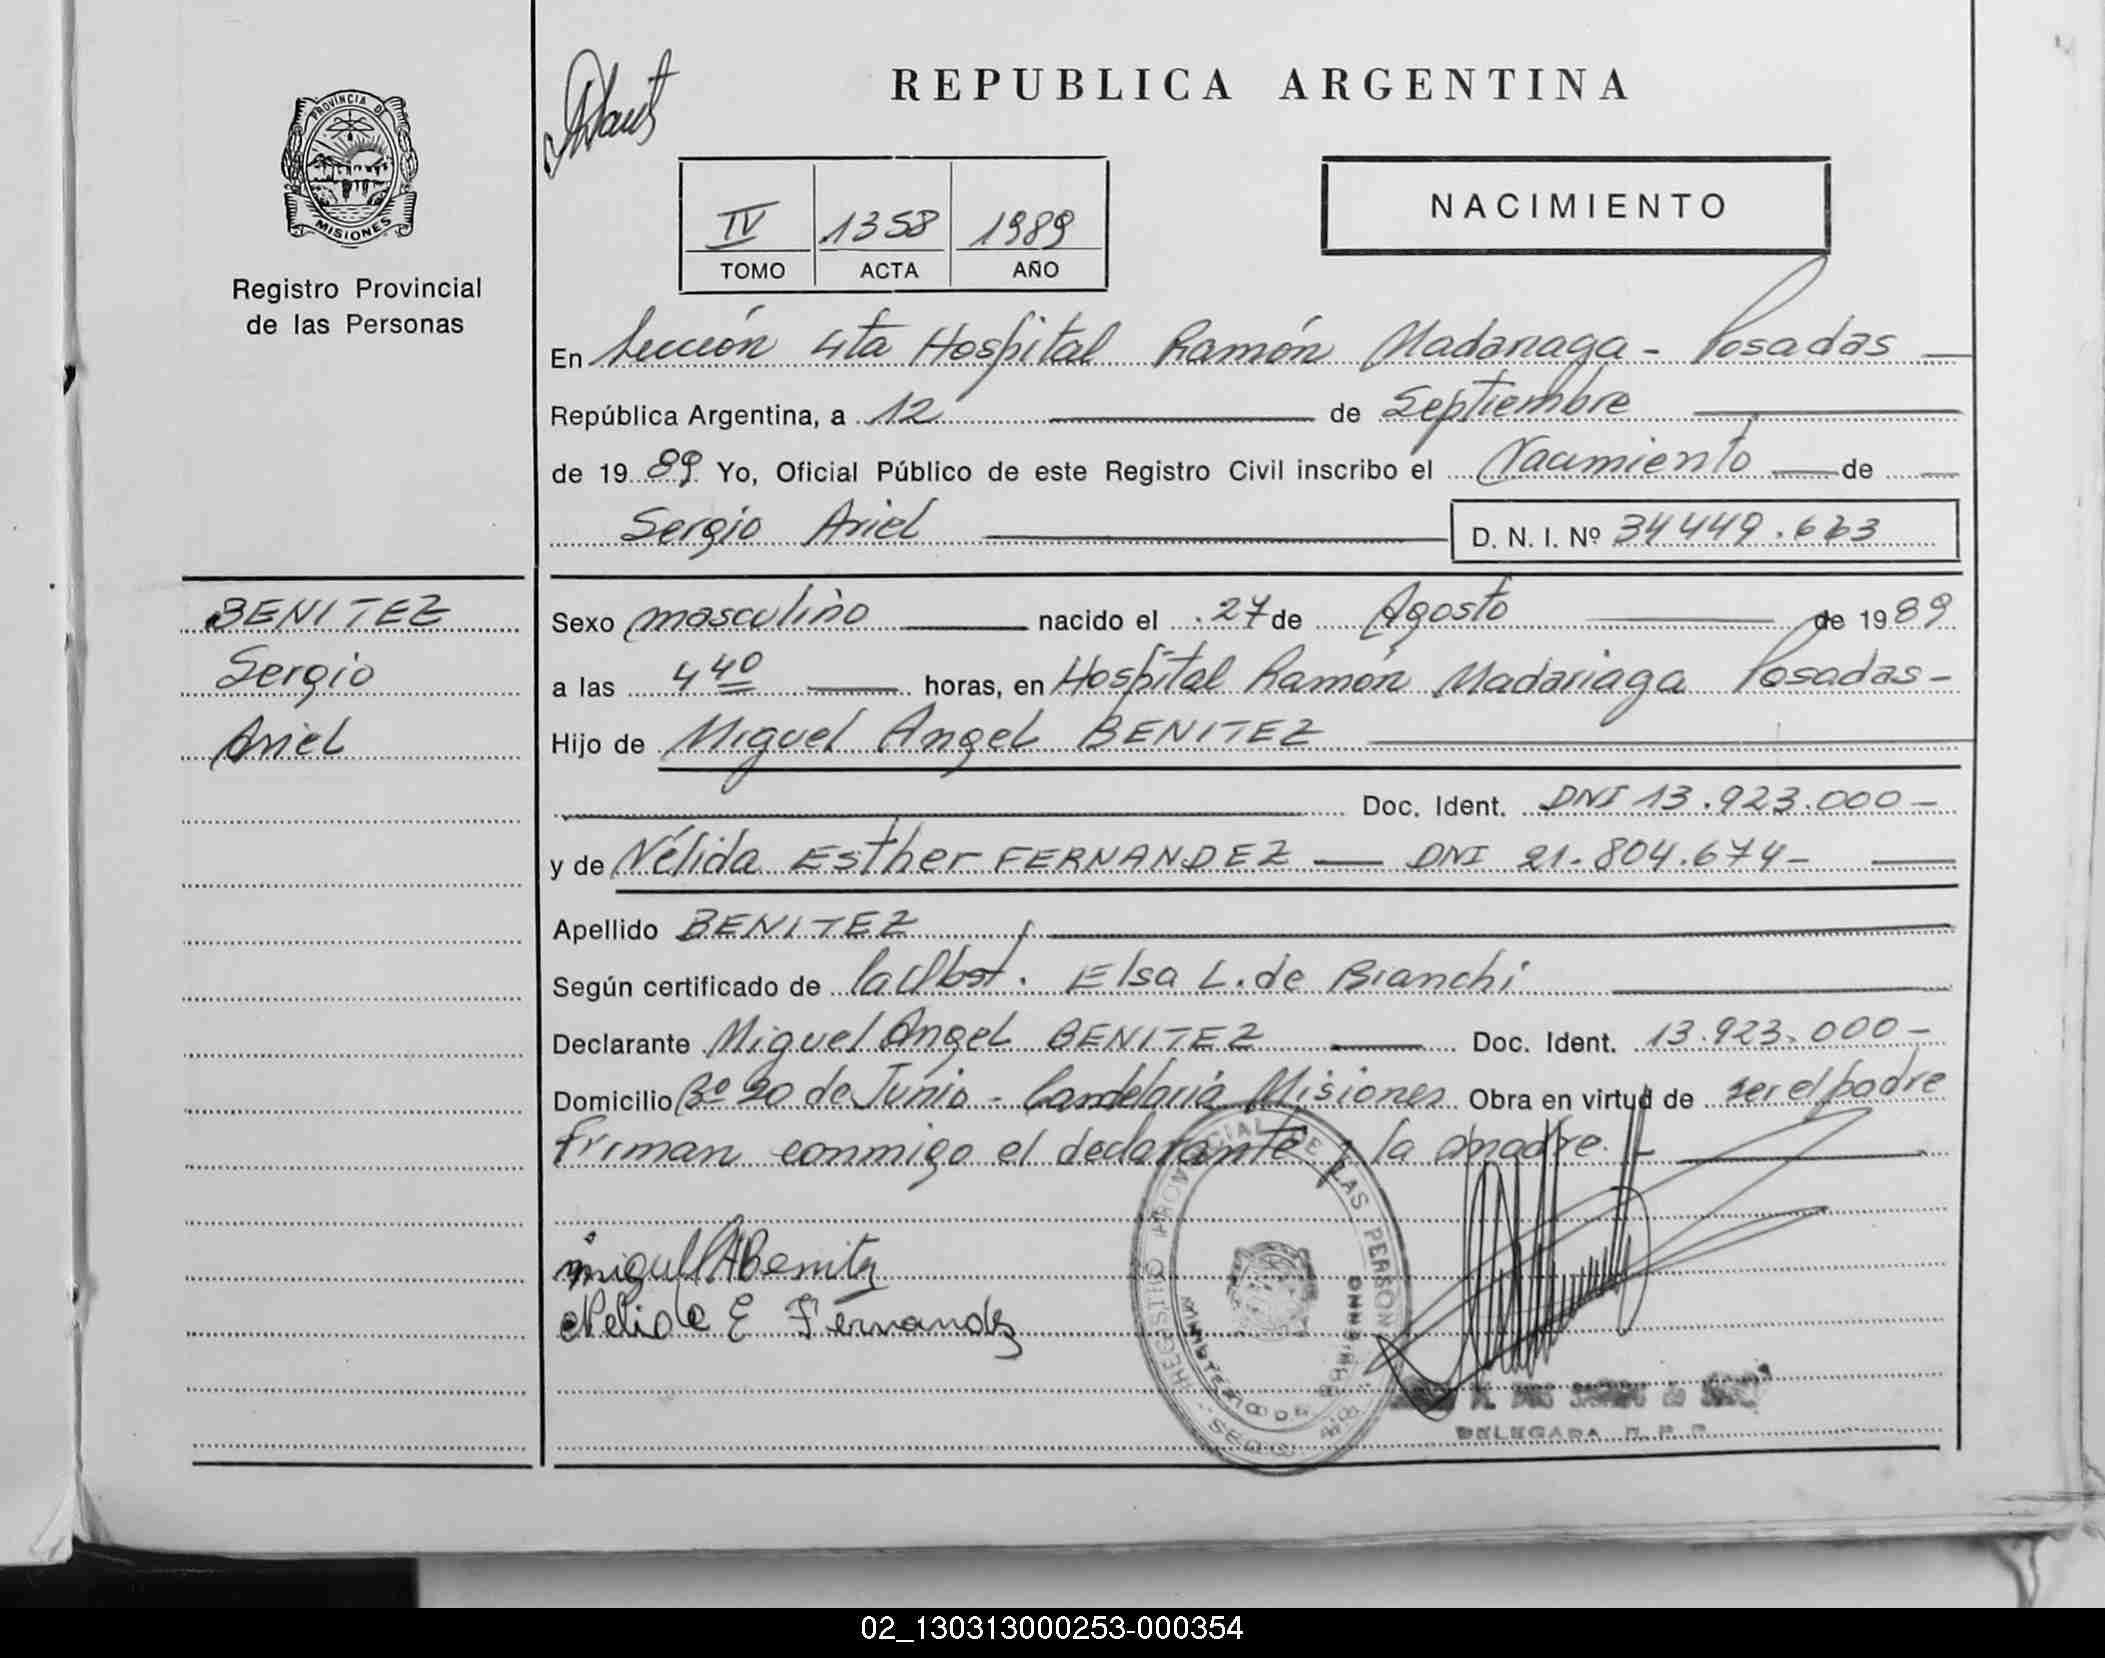 REPUBLICA ARGENTINA
PROVINCIA DE
MISIONES
Registro Provincial
de las Personas
IV 1358 1989
TOMO ACTA AÑO
NACIMIENTO
En Sección 4ta Hospital Ramón Madariaga - Posadas —
República Argentina, a 12 — de Septiembre —
de 1989 Yo, Oficial Público de este Registro Civil inscribo el Nacimiento — de —
Sergio Ariel — D. N. I. Nº 34449.623
BENITEZ
Sergio
Ariel
Sexo masculino — nacido el 27 de Agosto — de 1989
a las 4 40 — horas, en Hospital Ramón Madariaga Posadas -
Hijo de Miguel Angel BENITEZ —
Doc. Ident. DNI 13.923.000 -
y de Nélida Esther FERNANDEZ — DNI 21.804.674 - —
Apellido BENITEZ —
Según certificado de la Obst. Elsa L. de Bianchi —
Declarante Miguel Angel BENITEZ — Doc. Ident. 13.923.000 -
Domicilio Bº 20 de Junio - Candelaria Misiones Obra en virtud de ser el padre
Firman conmigo el declarante y la madre. - —
Miguel A Benitez
Nelida E Fernandez
REGISTRO PROVINCIAL DE LAS PERSONAS
MINISTERIO DE GOBIERNO
DELEGADA R. P. P.
02_130313000253-000354